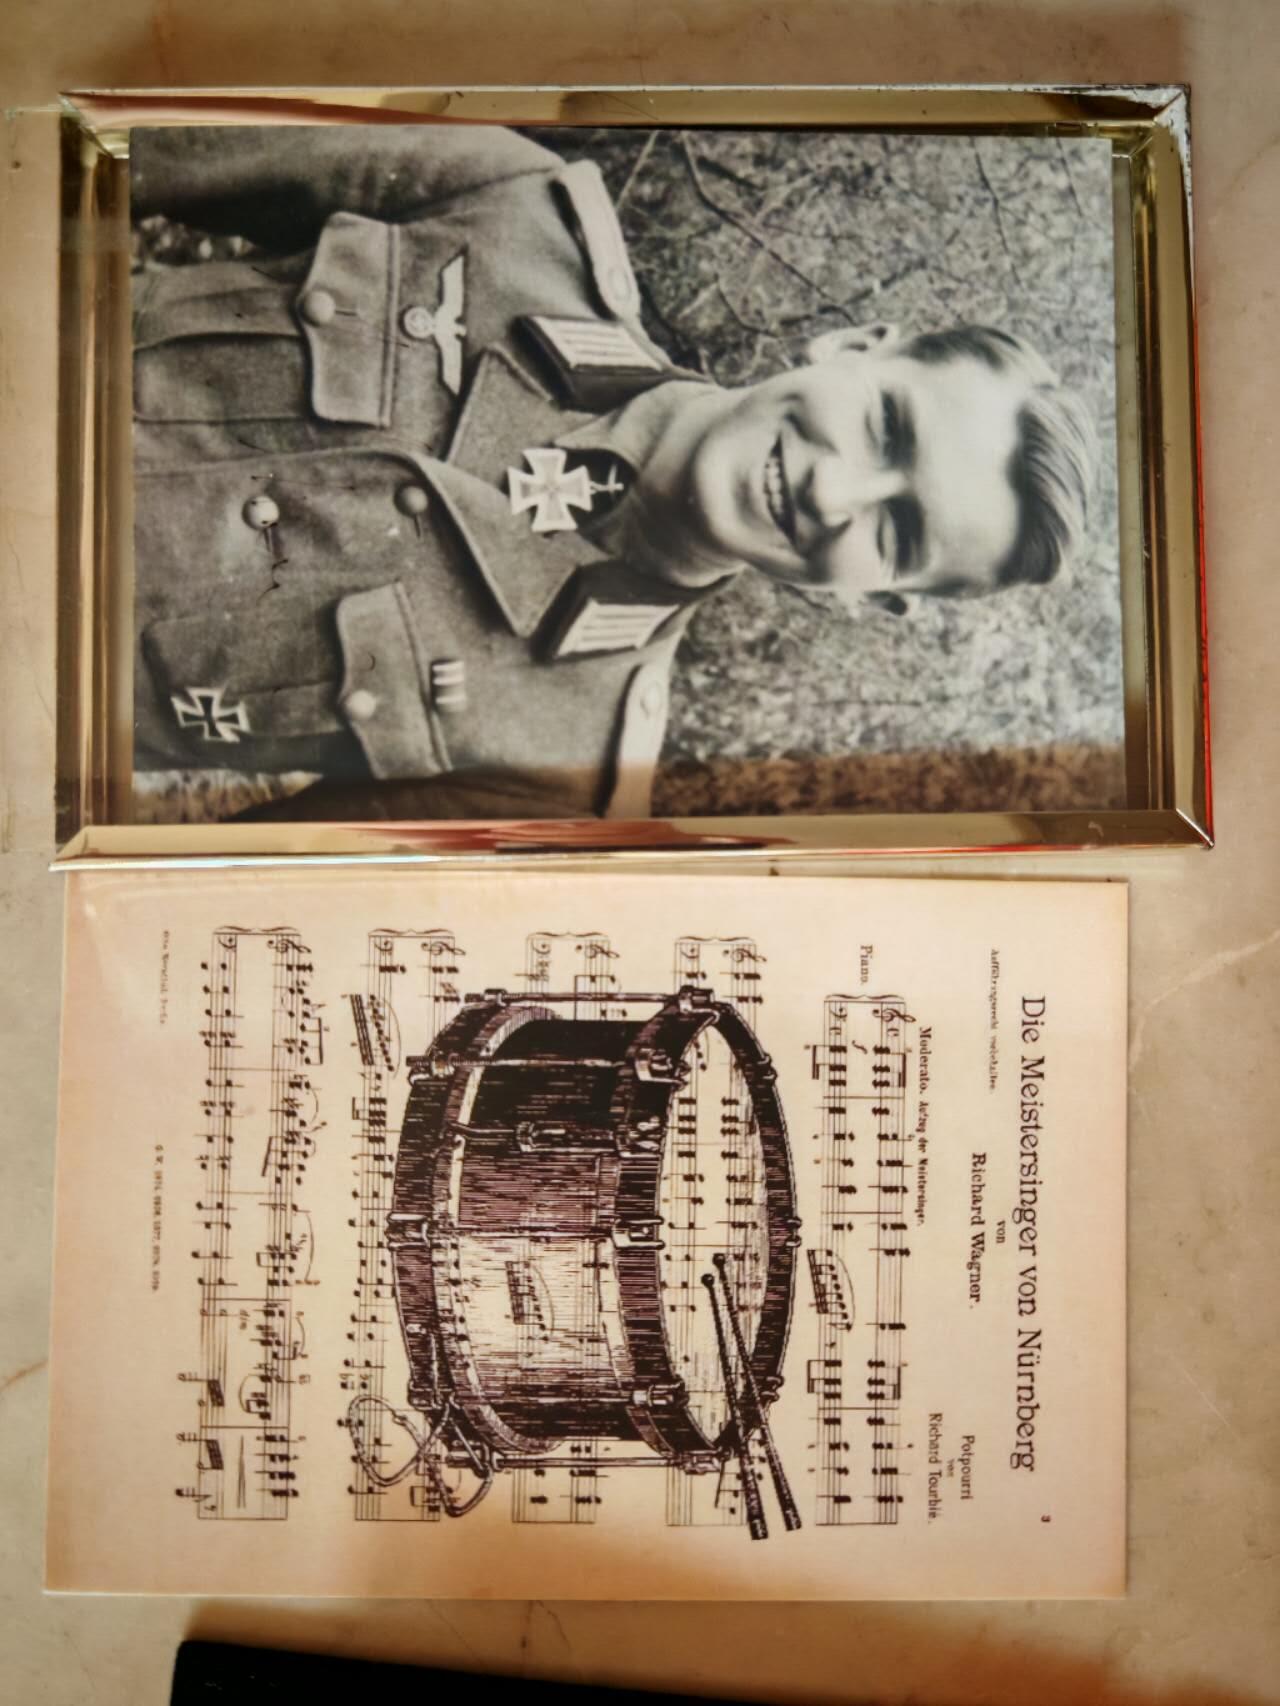 3
Die Meistersinger von Nürnberg
von
Richard Wagner.
Aufführungsrecht vorbehalten.
Potpourri
von
Richard Tourbié.
Moderato. Aufzug der Meistersinger.
Piano.
f
dim